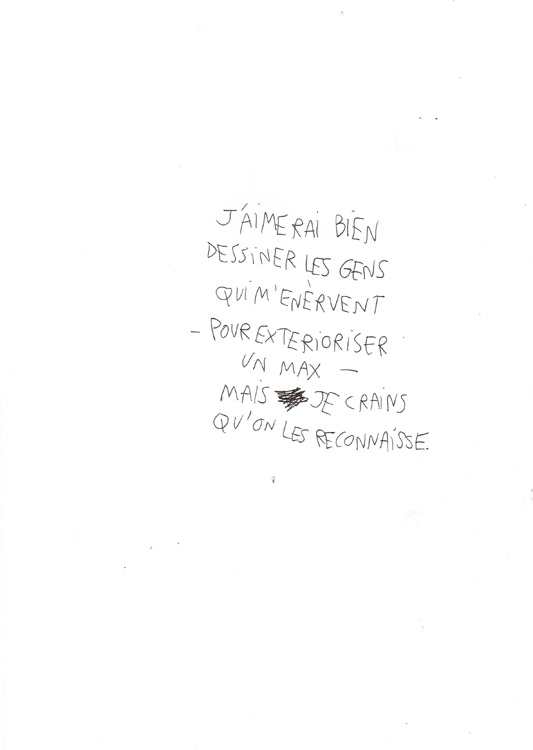 J'AIMERAI BIEN
DESSINER LES GENS
QUI M'ENÈRVENT
- POUR EXTERIORISER
UN MAX -
MAIS JE CRAINS
QU'ON LES RECONNAISSE.